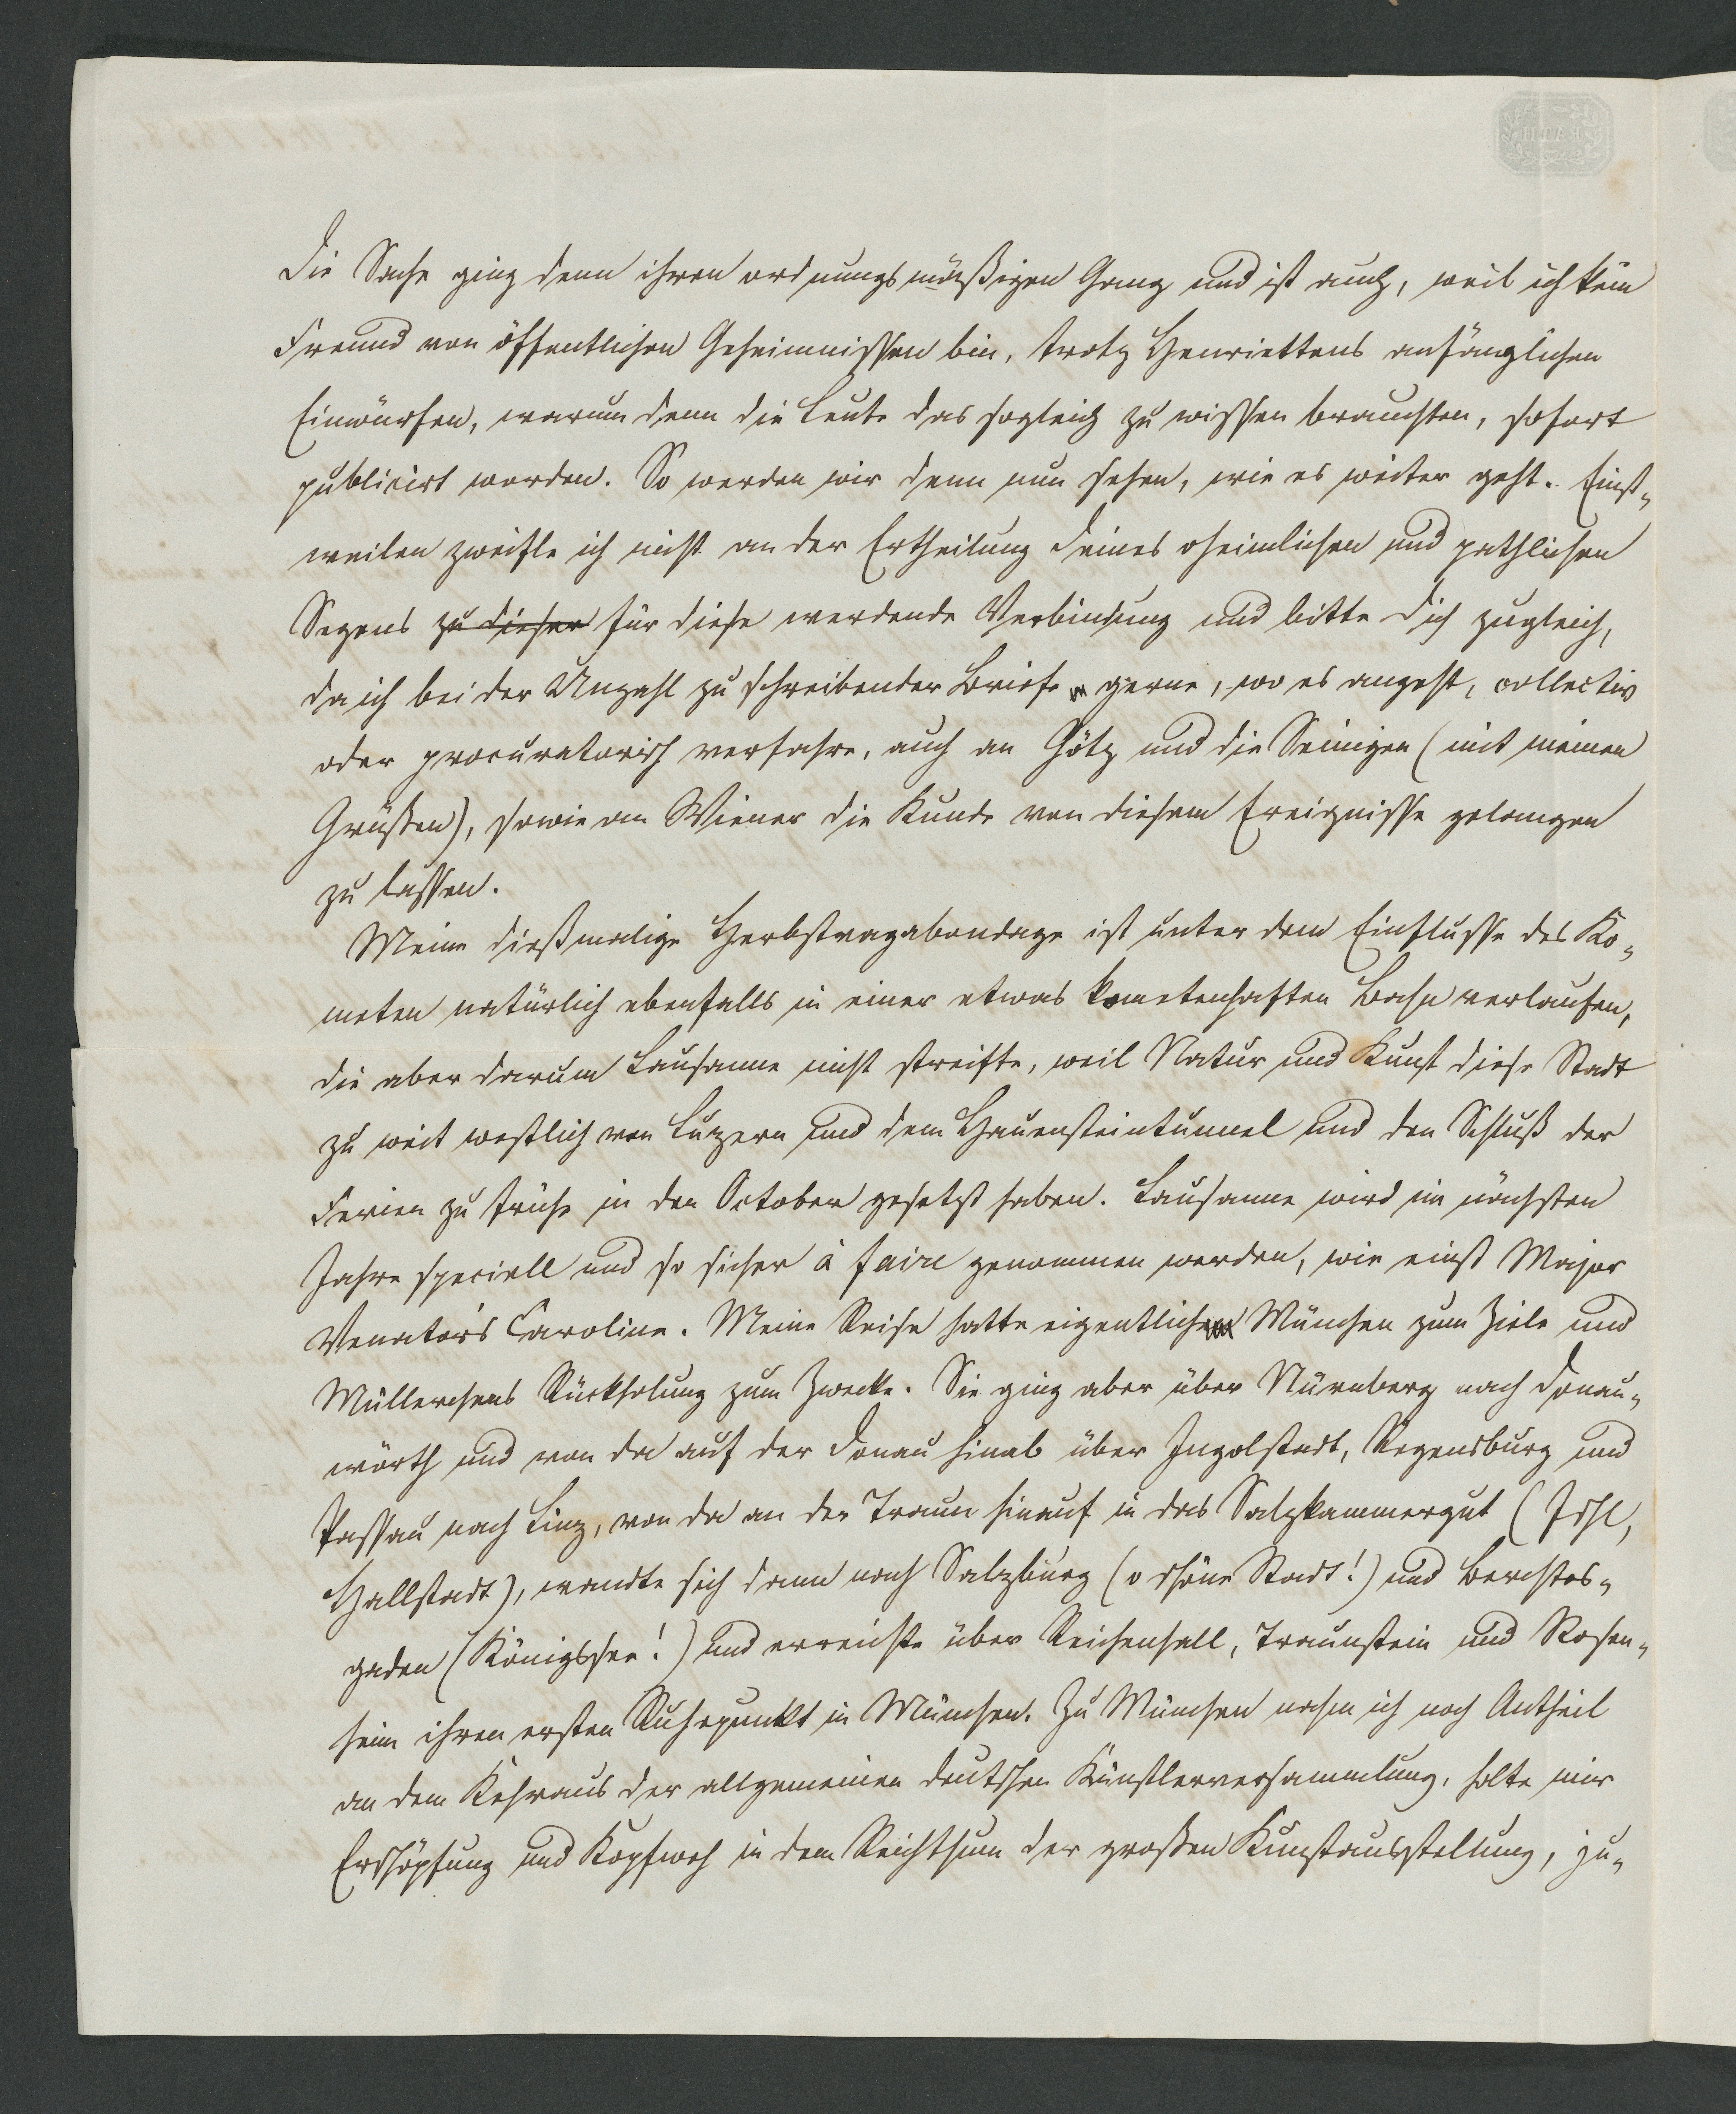 Die Sache ging denn ihren ordnungsmäßigen Gang und ist auch, weil ich kein
Freund von öffentlichen Geheimnissen bin, trotz Henriettens anfänglichen
Einwürfen, warum denn die Leute das sogleich zu wissen brauchten, sofort
publicirt worden. So werden wir denn nun sehen, wie es weiter geht. Einst-
weilen zweifle ich nicht an der Ertheilung Deines oheimlichen und pathlichen
Segens zu dieser für diese werdende Verbindung und bitte Dich zugleich,
da ich bei der Unzahl zu schreibender Briefe gerne, wo es angeht, collectiv
oder procuratorisch verfahre, auch an Götz und die Seinigen (mit meinen
Grüßen), sowie an Wiener die Kunde von diesem Ereignisse gelangen
zu lassen.
Meine dießmalige Herbstvagabondage ist unter dem Einflusse des Ko-
meten natürlich ebenfalls in einer etwas kometenhaften Bahn verlaufen,
die aber darum Lausanne nicht streifte, weil Natur und Kunst diese Stadt
zu weit westlich von Luzern und dem Hauensteintunnel und den Schluß der
Ferien zu frühe in den October gesetzt haben. Lausanne wird im nächsten
Jahre speciell und so sicher à faire genommen werden, wie einst Major
Venator's Caroline. Meine Reise hatte eigentlich München zum Ziele und
Müllerchens Rückholung zum Zwecke. Sie ging aber über Nürnberg nach Donau-
wörth und von da auf der Donau hinab über Ingolstadt, Regensburg und
Passau nach Linz, von da an der Traun hinauf in das Salzkammergut (Ischl,
Hallstadt), wandte sich dann nach Salzburg (o schöne Stadt!) und Berchtes-
gaden (Königssee!) und erreichte über Reichenhall, Traunstein und Rosen-
heim ihren ersten Ruhepunkt in München. Zu München nahm ich noch Antheil
an dem Kehraus der allgemeinen deutschen Künstlerversammlung, holte mir
Erschöpfung und Kopfweh in dem Reichthum der großen Kunstausstellung, zu-